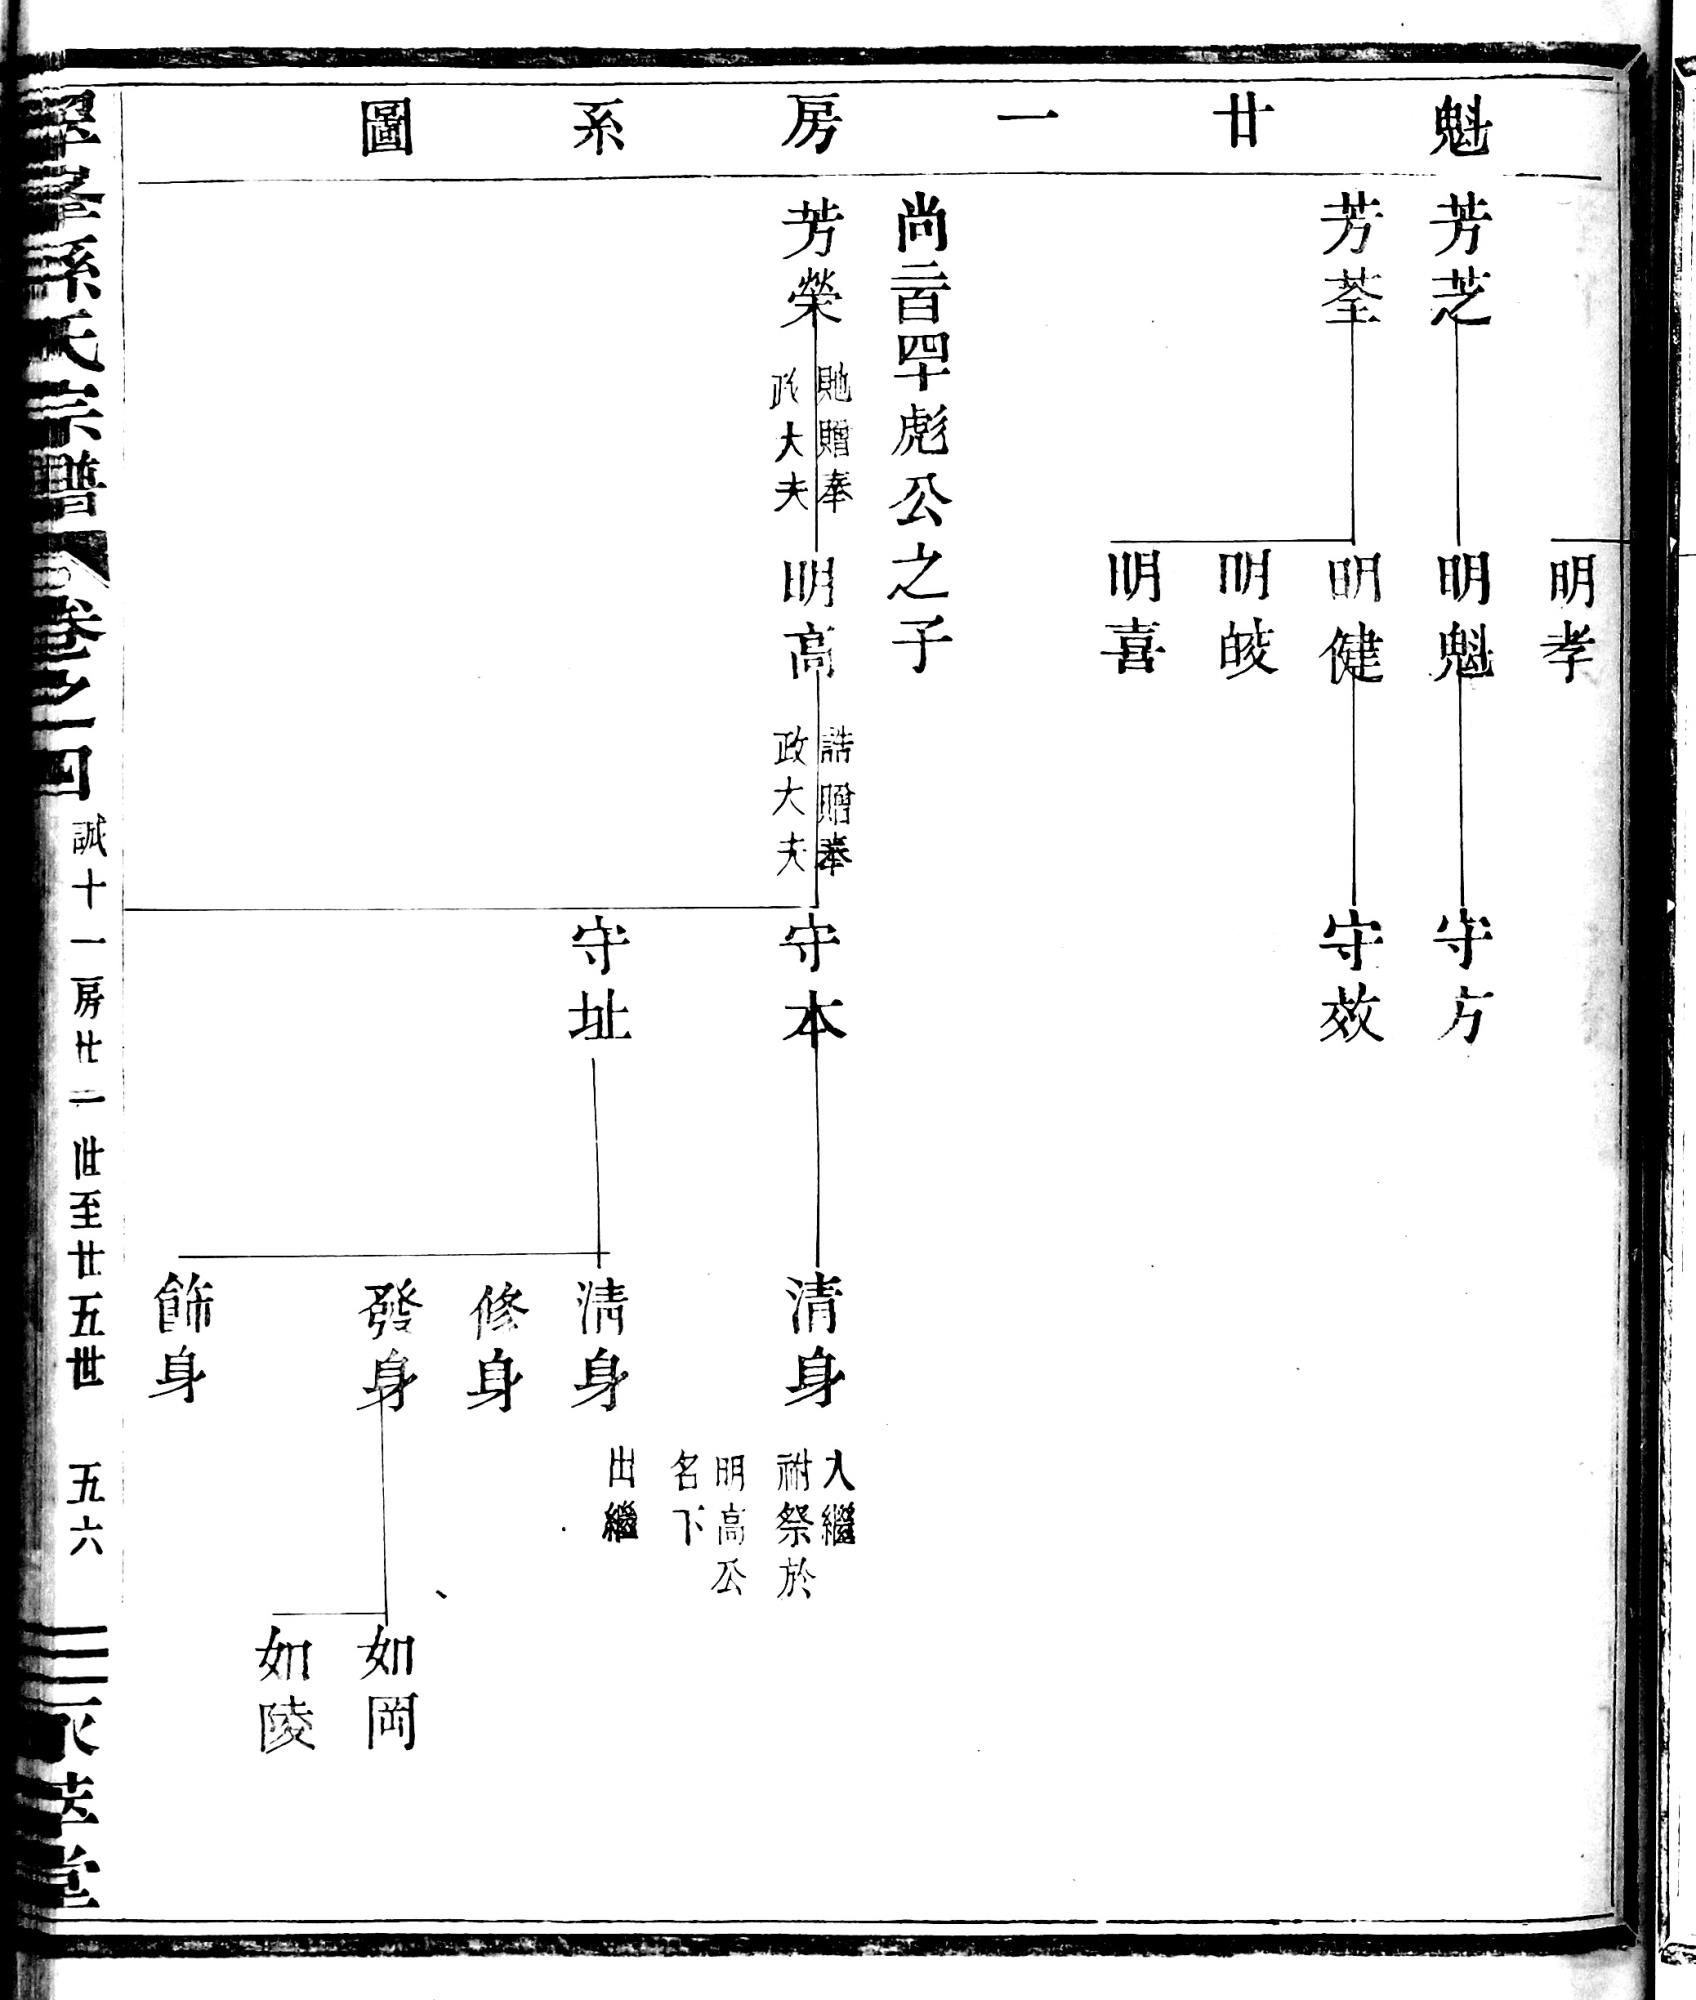 魁廿一房系圖
明孝
芳芝
明魁
守方
芳荃
明健
守效
明皎
明喜
尚二百四十彪公之子
芳榮
貤贈奉
政大夫
明高
誥贈奉
政大夫
守本
清身
入繼
祔祭於
明高公
名下
守址
清身
出繼
修身
發身
如岡
如陵
飾身
孫氏宗譜
卷之一四
誠十一房廿一世至廿五世
五六
萃堂